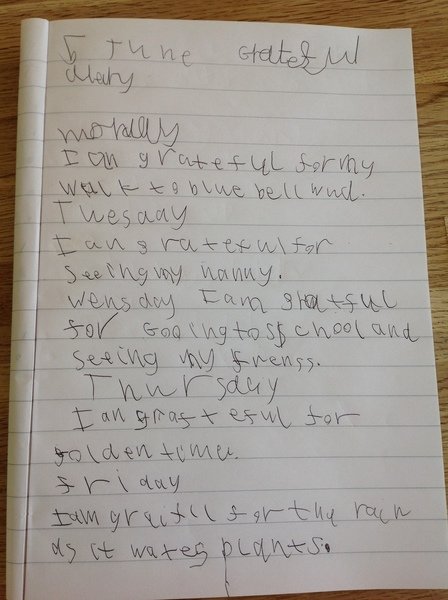 5 June Grateful
diary
monday
I am grateful for my
walk to blue bell wud.
Tuesaay
I an grateful for
seeing my nanny.
wensday I am gratful
for Gooing to school and
seeing my frenss.
Thursday
I an graft eful for
golden time.
friday
I am for the rain
as it wates plants.